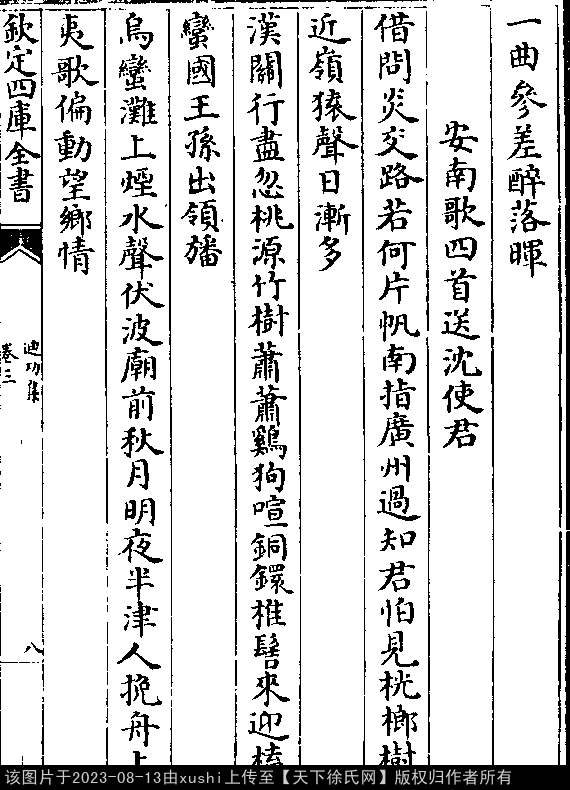 一曲參差醉落暉
安南歌四首送沈使君
借問炎交路若何片帆南指廣州過知君怕見桄榔樹
近嶺猿聲日漸多
漢關行盡忽桃源竹樹蕭蕭鷄狗喧銅鐶椎髻來迎
蠻國王孫出領旛
烏蠻灘上煙水聲伏波廟前秋月明夜半津人挽舟上
夷歌偏動望鄉情
欽定四庫全書
迪功集
卷三
八
该图片于2023-08-13由xushi上传至【天下徐氏网】版权归作者所有